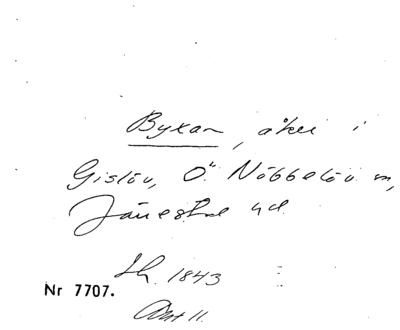 Bykan, åker i
Gislöv, Ö. Nöbbelöv sn,
Järrestad hd
Sh. 1843
Nr 7707.